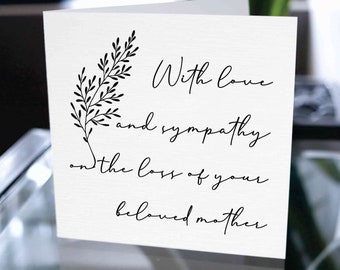 With love
and sympathy
on the loss of your
beloved mother